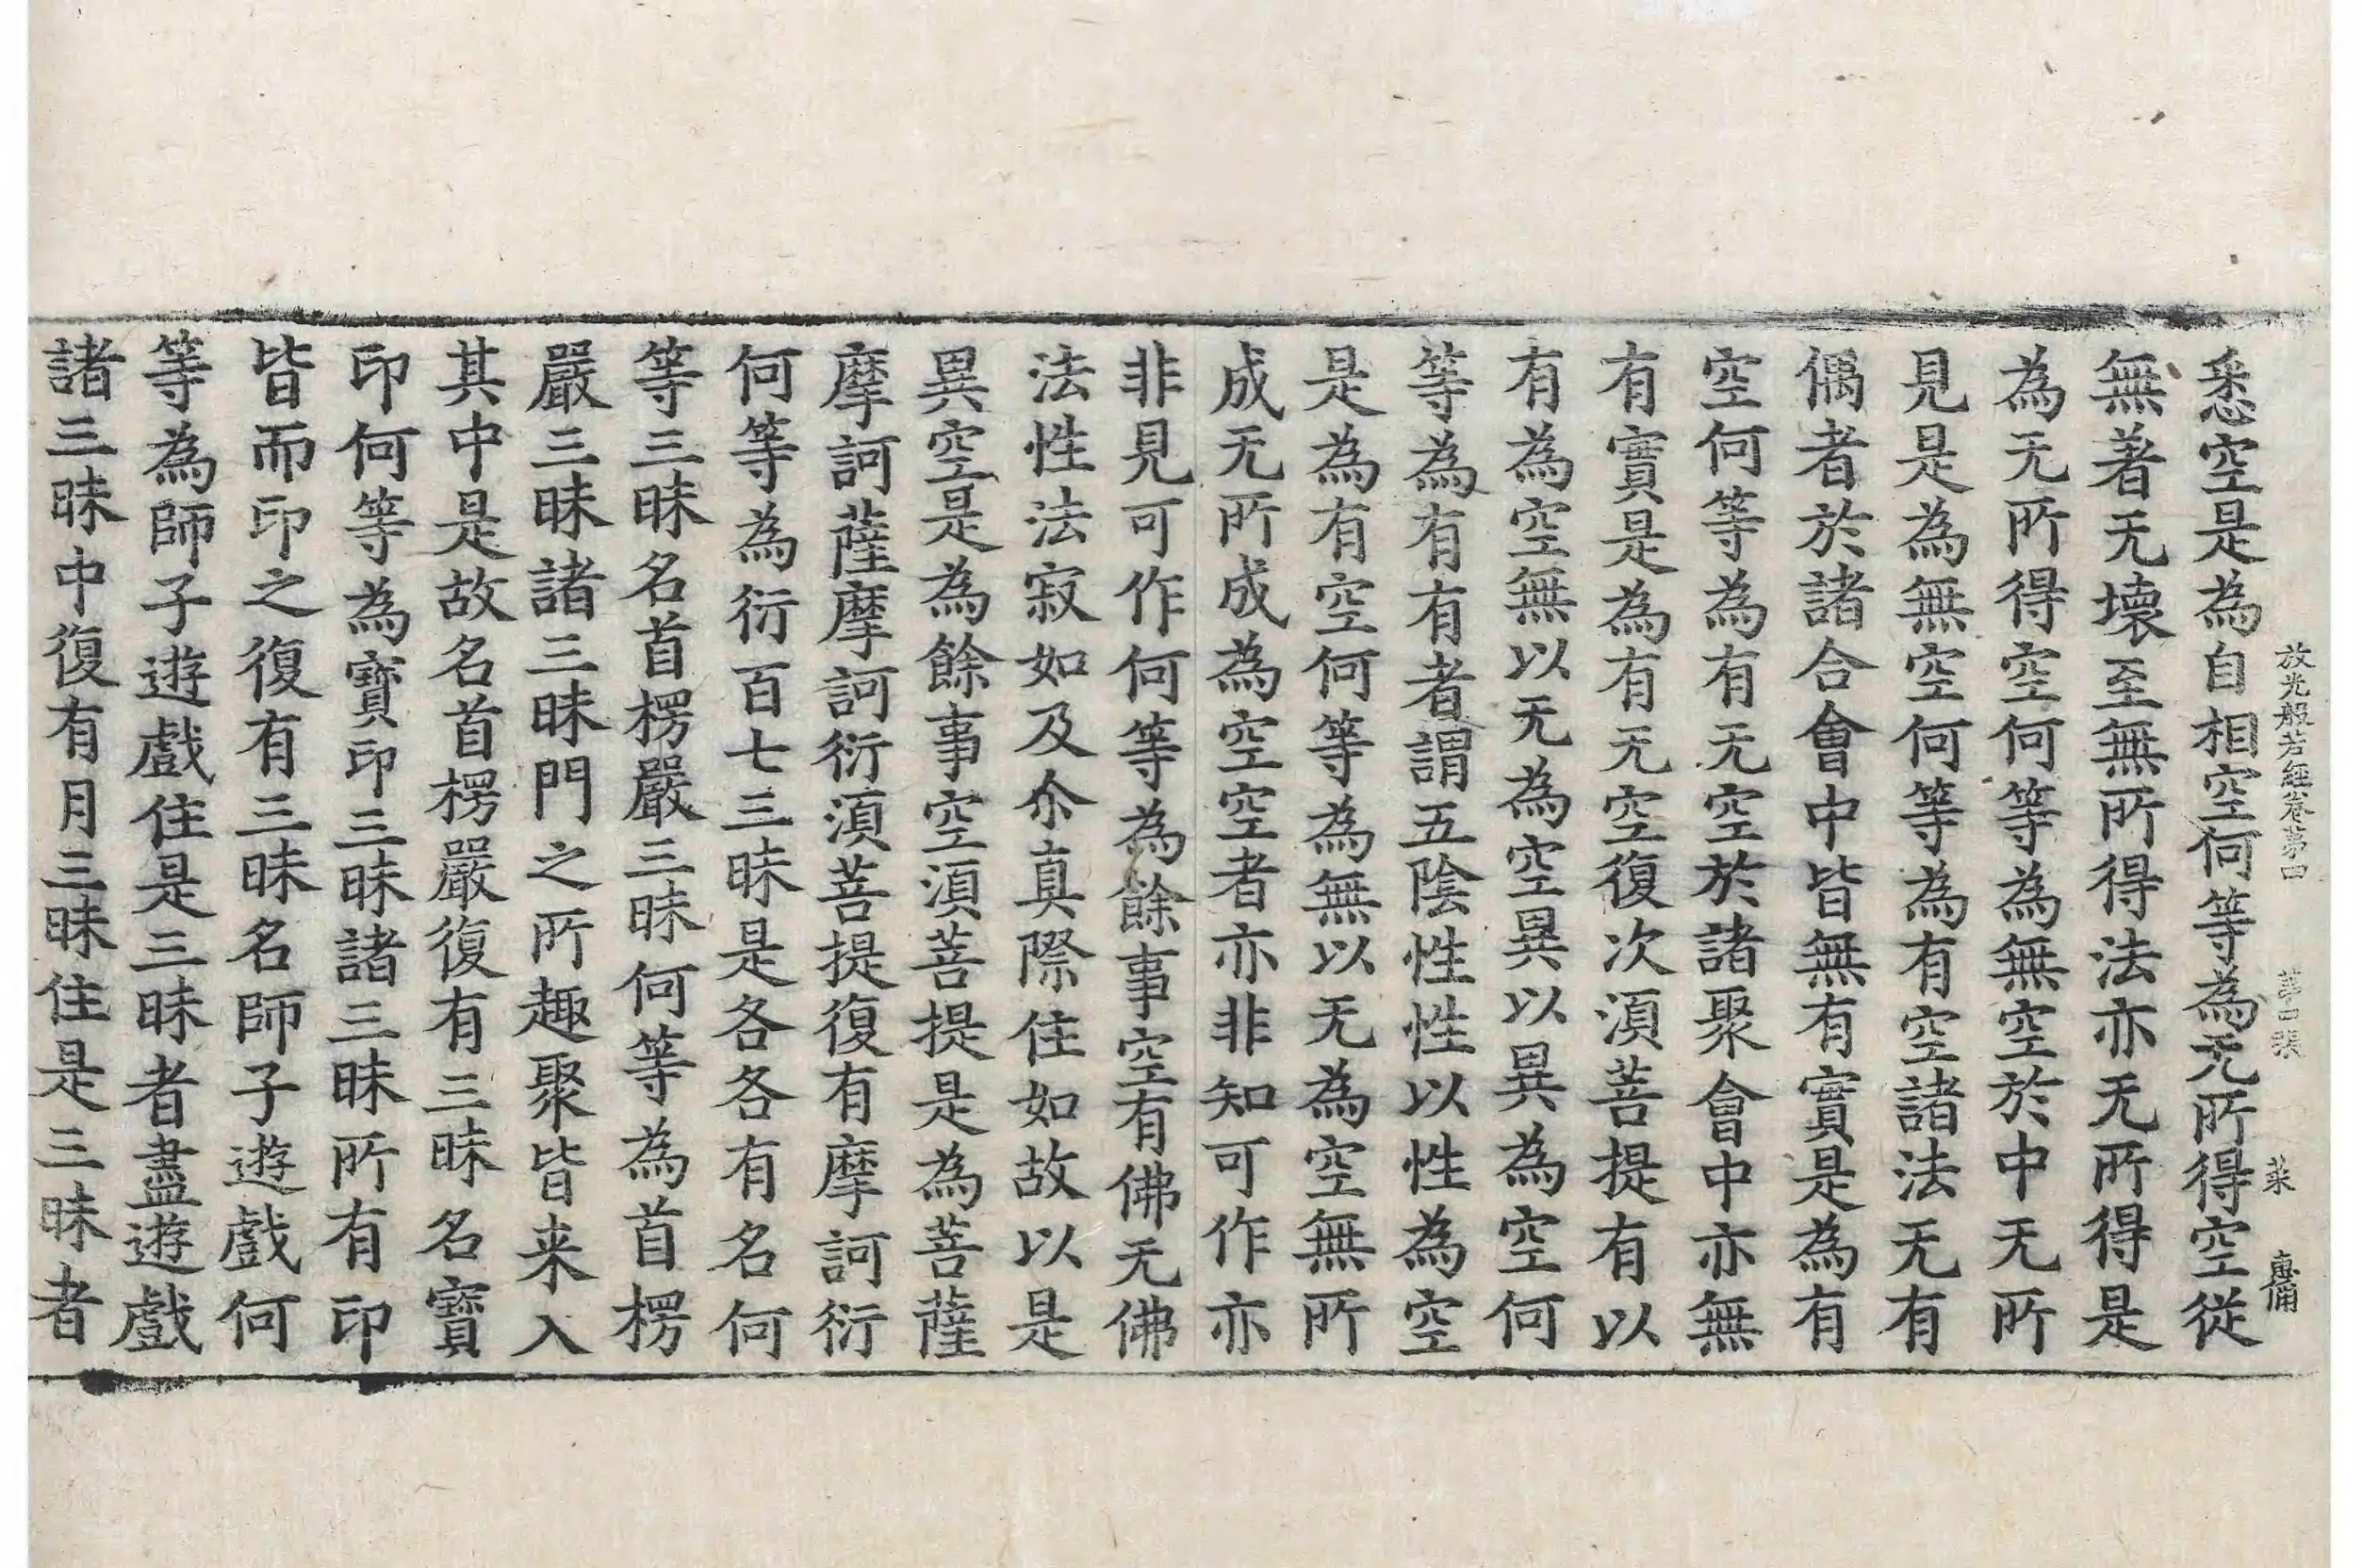 放光般若経卷苐四 苐四張 菜 惠僃
悉空是為自相空何等為无所得空従
無著无壞至無所得法亦无所得是
為无所得空何等為無空於中无所
見是為無空何等為有空諸法无有
偶者於諸合會中皆無有實是為有
空何等為有无空於諸聚會中亦無
有實是為有无空復次湏菩提有以
有為空無以无為空異以異為空何
等為有有者謂五陰性性以性為空
是為有空何等為無以无為空無所
成无所成為空空者亦非知可作亦
非見可作何等為餘事空有佛无佛
法性法寂如及尒真際住如故以是
異空是為餘事空湏菩提是為菩薩
摩訶薩摩訶衍湏菩提復有摩訶衍
何等為衍百七三昧是各各有名何
等三昧名首楞嚴三昧何等為首楞
嚴三昧諸三昧門之所趣聚皆来入
其中是故名首楞嚴復有三昧名寶
印何等為寶印三昧諸三昧所有印
皆而印之復有三昧名師子遊戲何
等為師子遊戲住是三昧者盡遊戲
諸三昧中復有月三昧住是三昧者